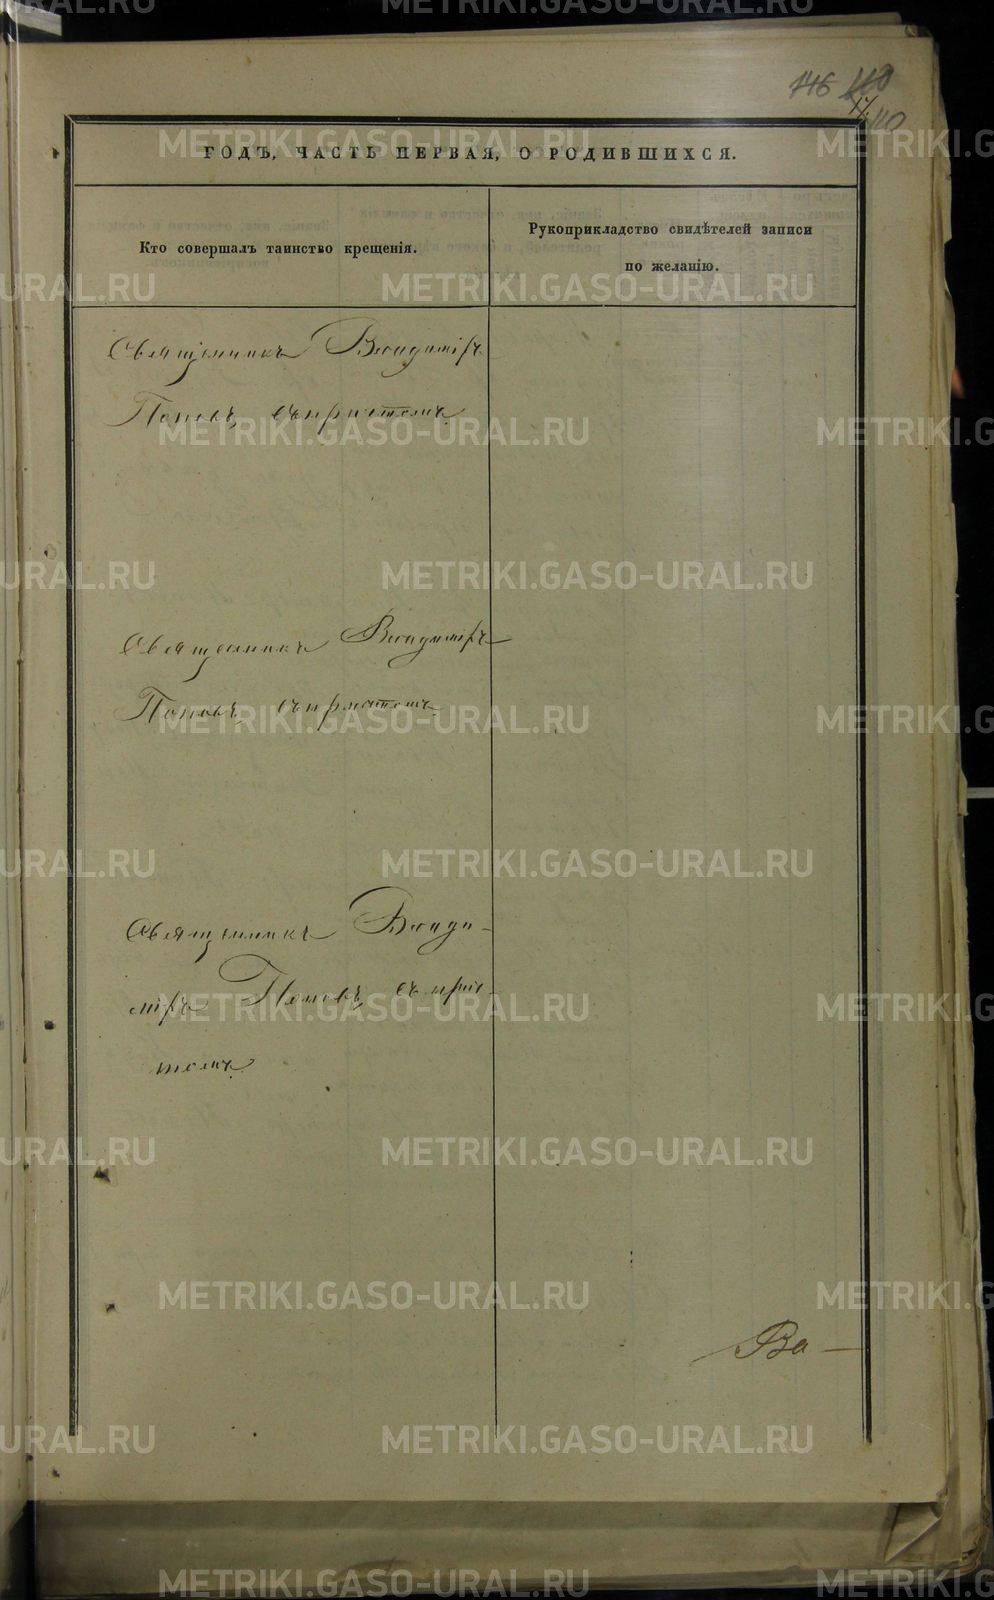 146 110
17
110
ГОДЪ, ЧАСТЬ ПЕРВАЯ, О РОДИВШИХСЯ.
Кто совершалъ таинство крещенія.
Рукоприкладство свидѣтелей записи
по желанію.
Священникъ Владиміръ
Поповъ съ притомъ.
Священникъ Владиміръ
Поповъ съ притомъ.
Священникъ Влади-
міръ Поповъ съ при-
томъ.
Ва-
METRIKI.GASO-URAL.RU